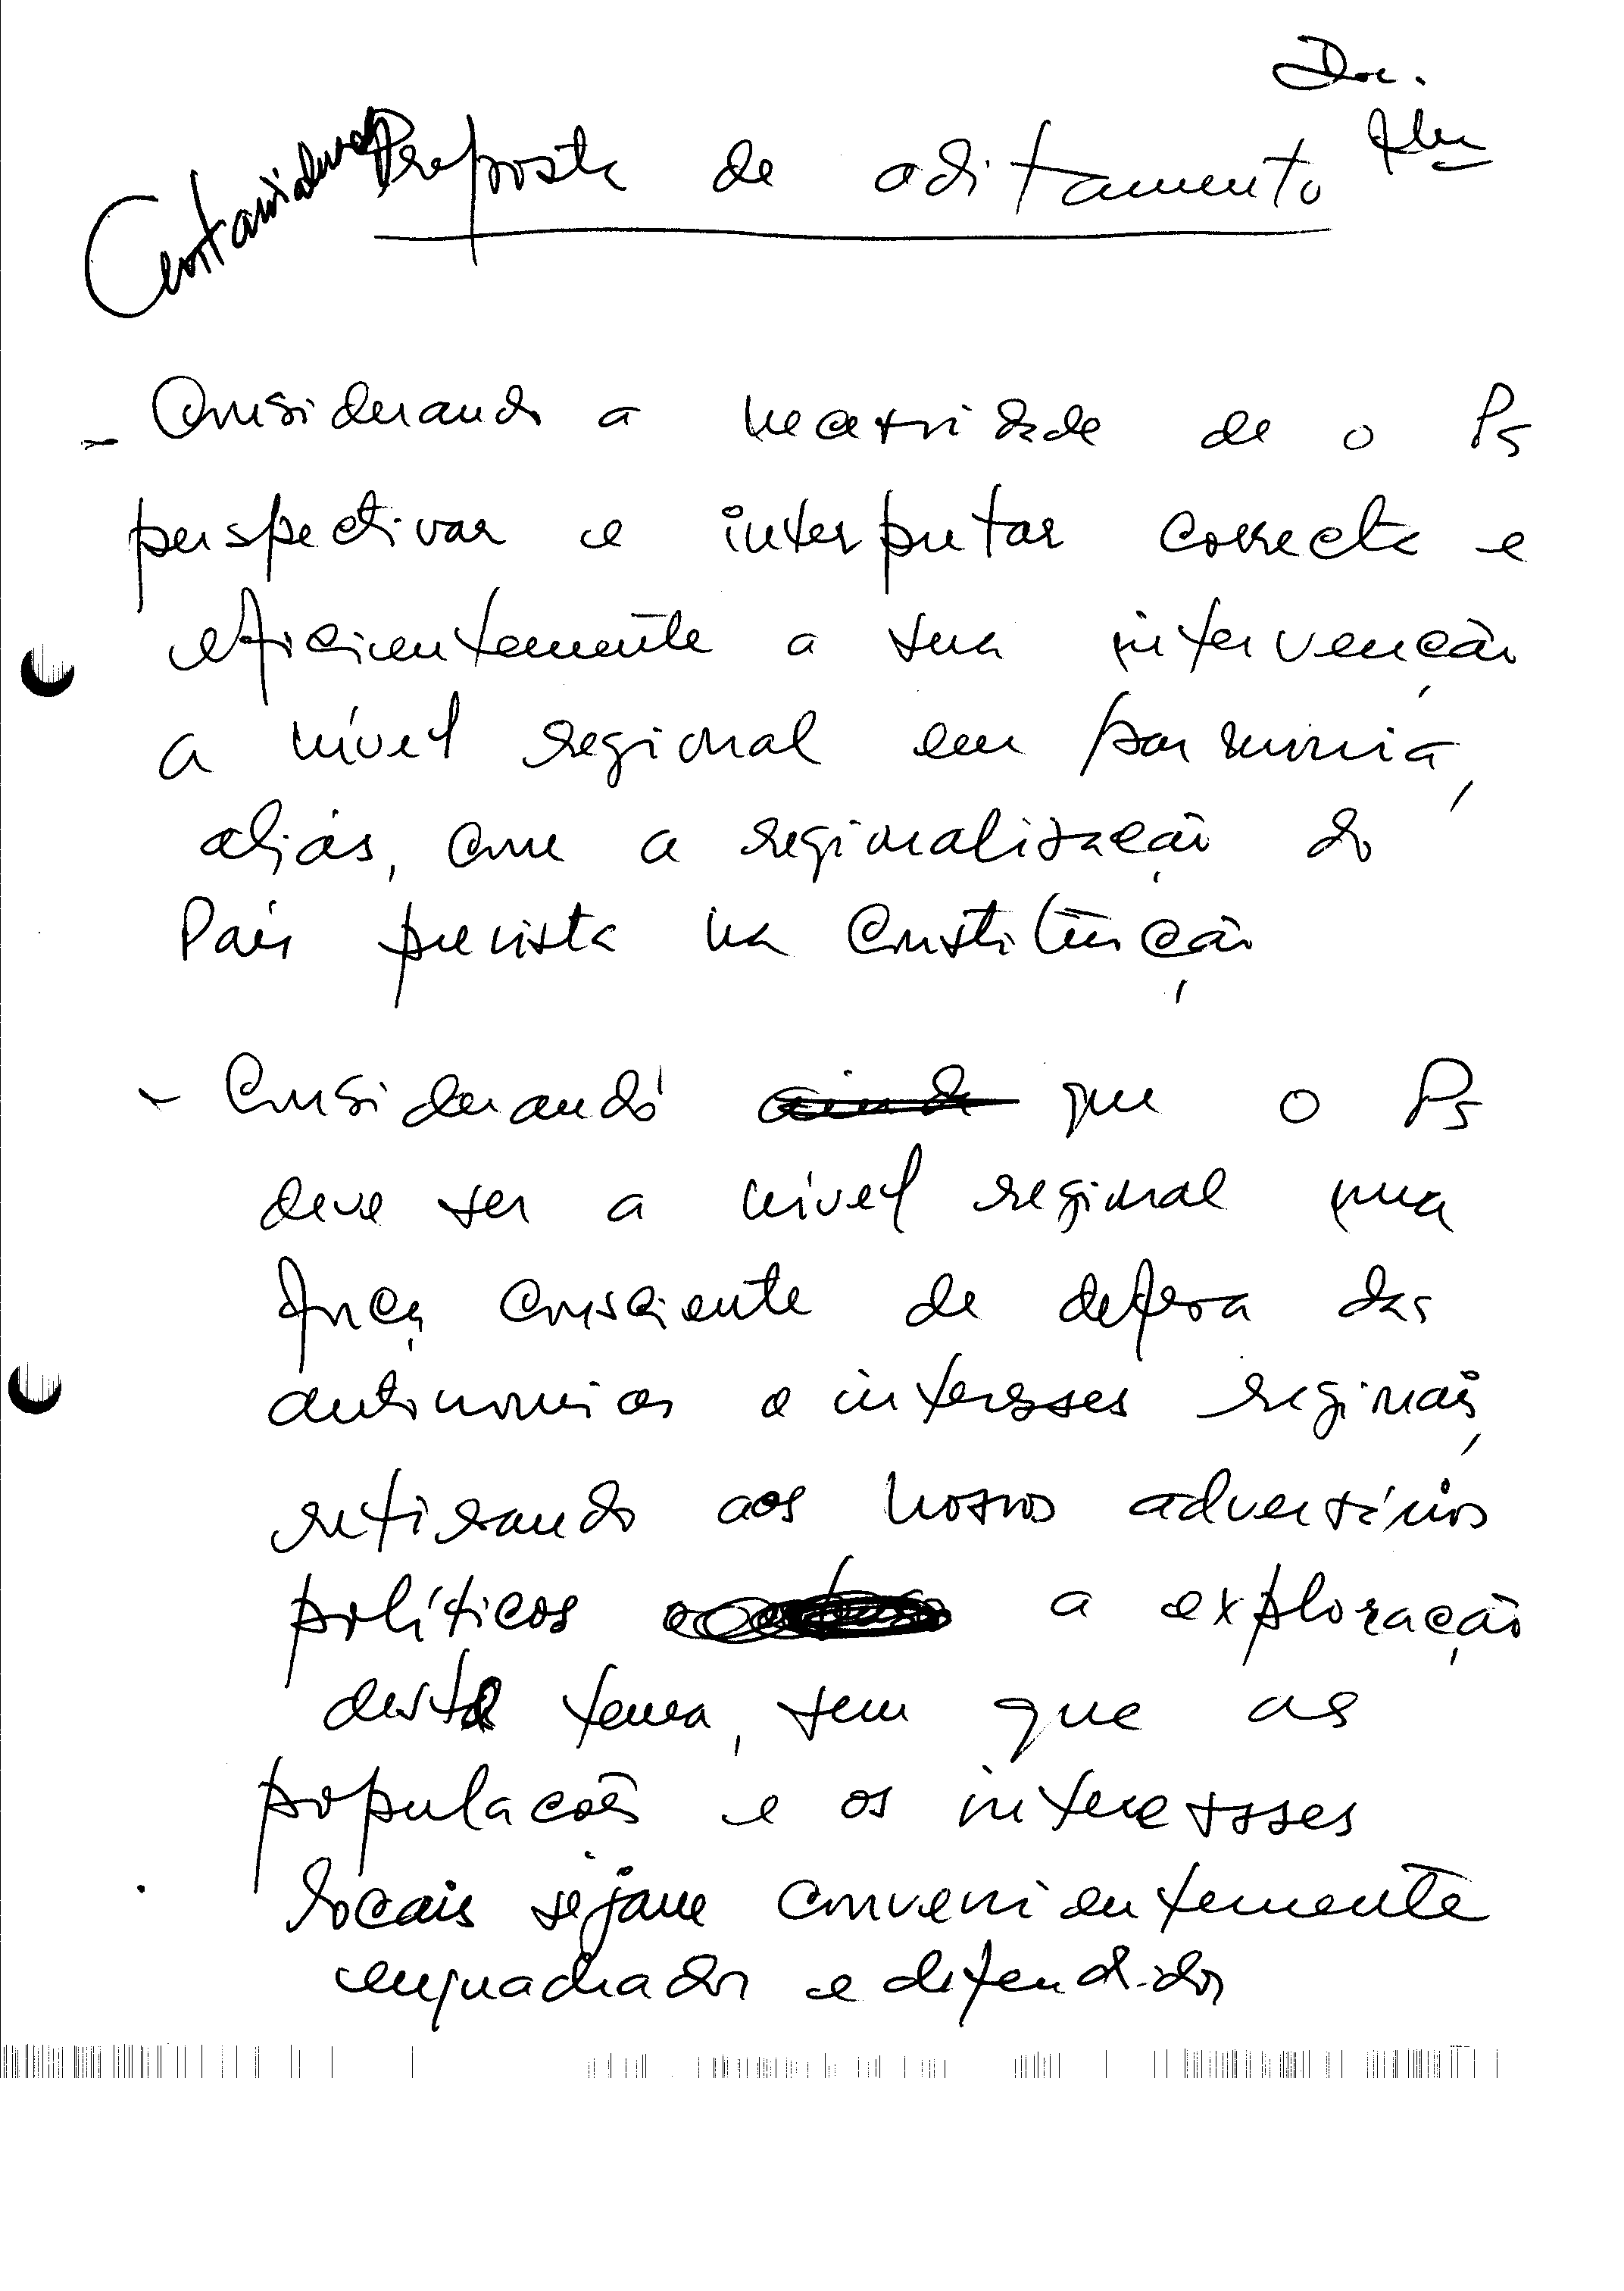 Doc.
Proposta de aditamento
- Considerando a necessidade de o PS
perspectivar e interpretar correcta e
eficientemente a sua intervenção
a nível regional em harmonia,
aliás, com a regionalização do
País prevista na Constituição
- Considerando ainda que o PS
deve ser a nível regional uma
força consciente de defesa das
autonomias e interesses regionais,
retirando aos nossos adversários
políticos a exploração
deste tema, sem que as
populações e os interesses
locais sejam convenientemente
enquadrados e defendidos